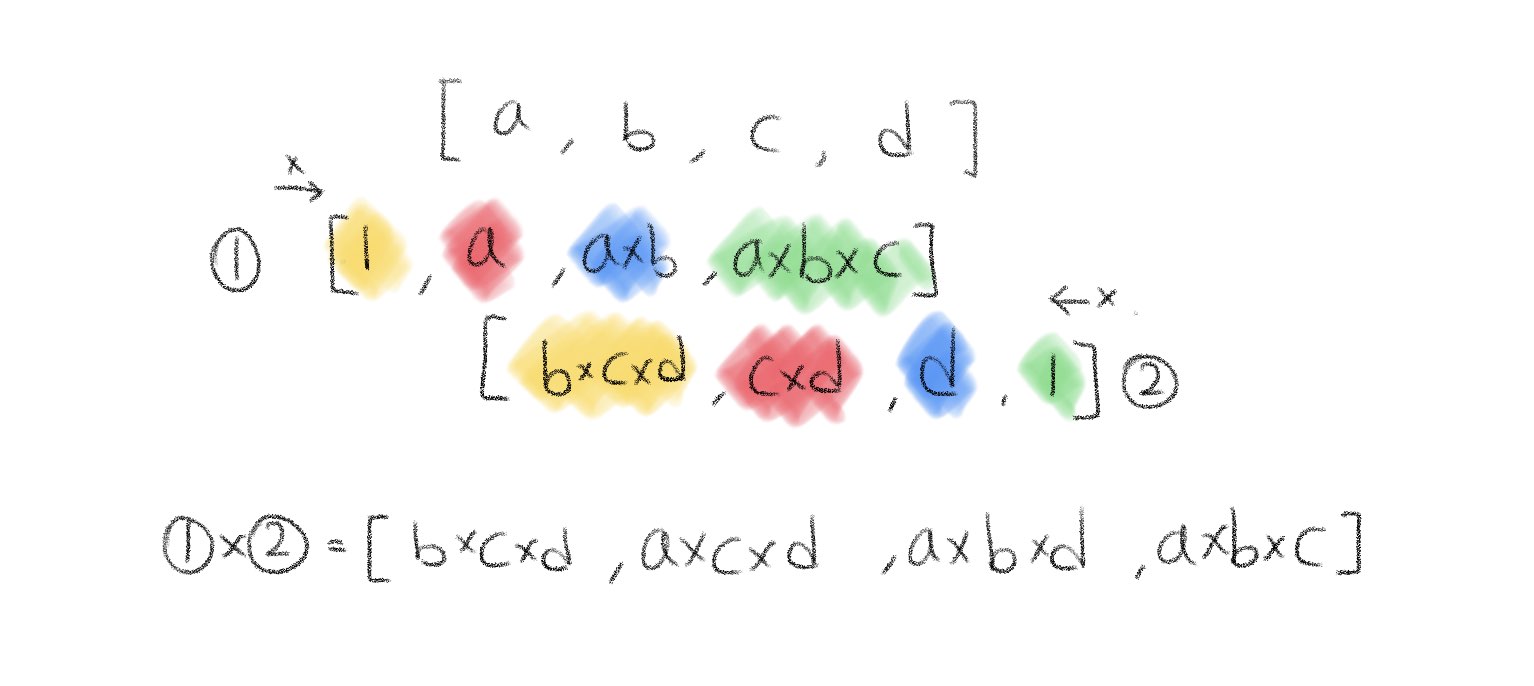 [ a , b , c , d ]
×
① [ 1 , a , a×b , a×b×c ]
×
[ b×c×d , c×d , d , 1 ] ②
①×② = [ b×c×d , a×c×d , a×b×d , a×b×c ]